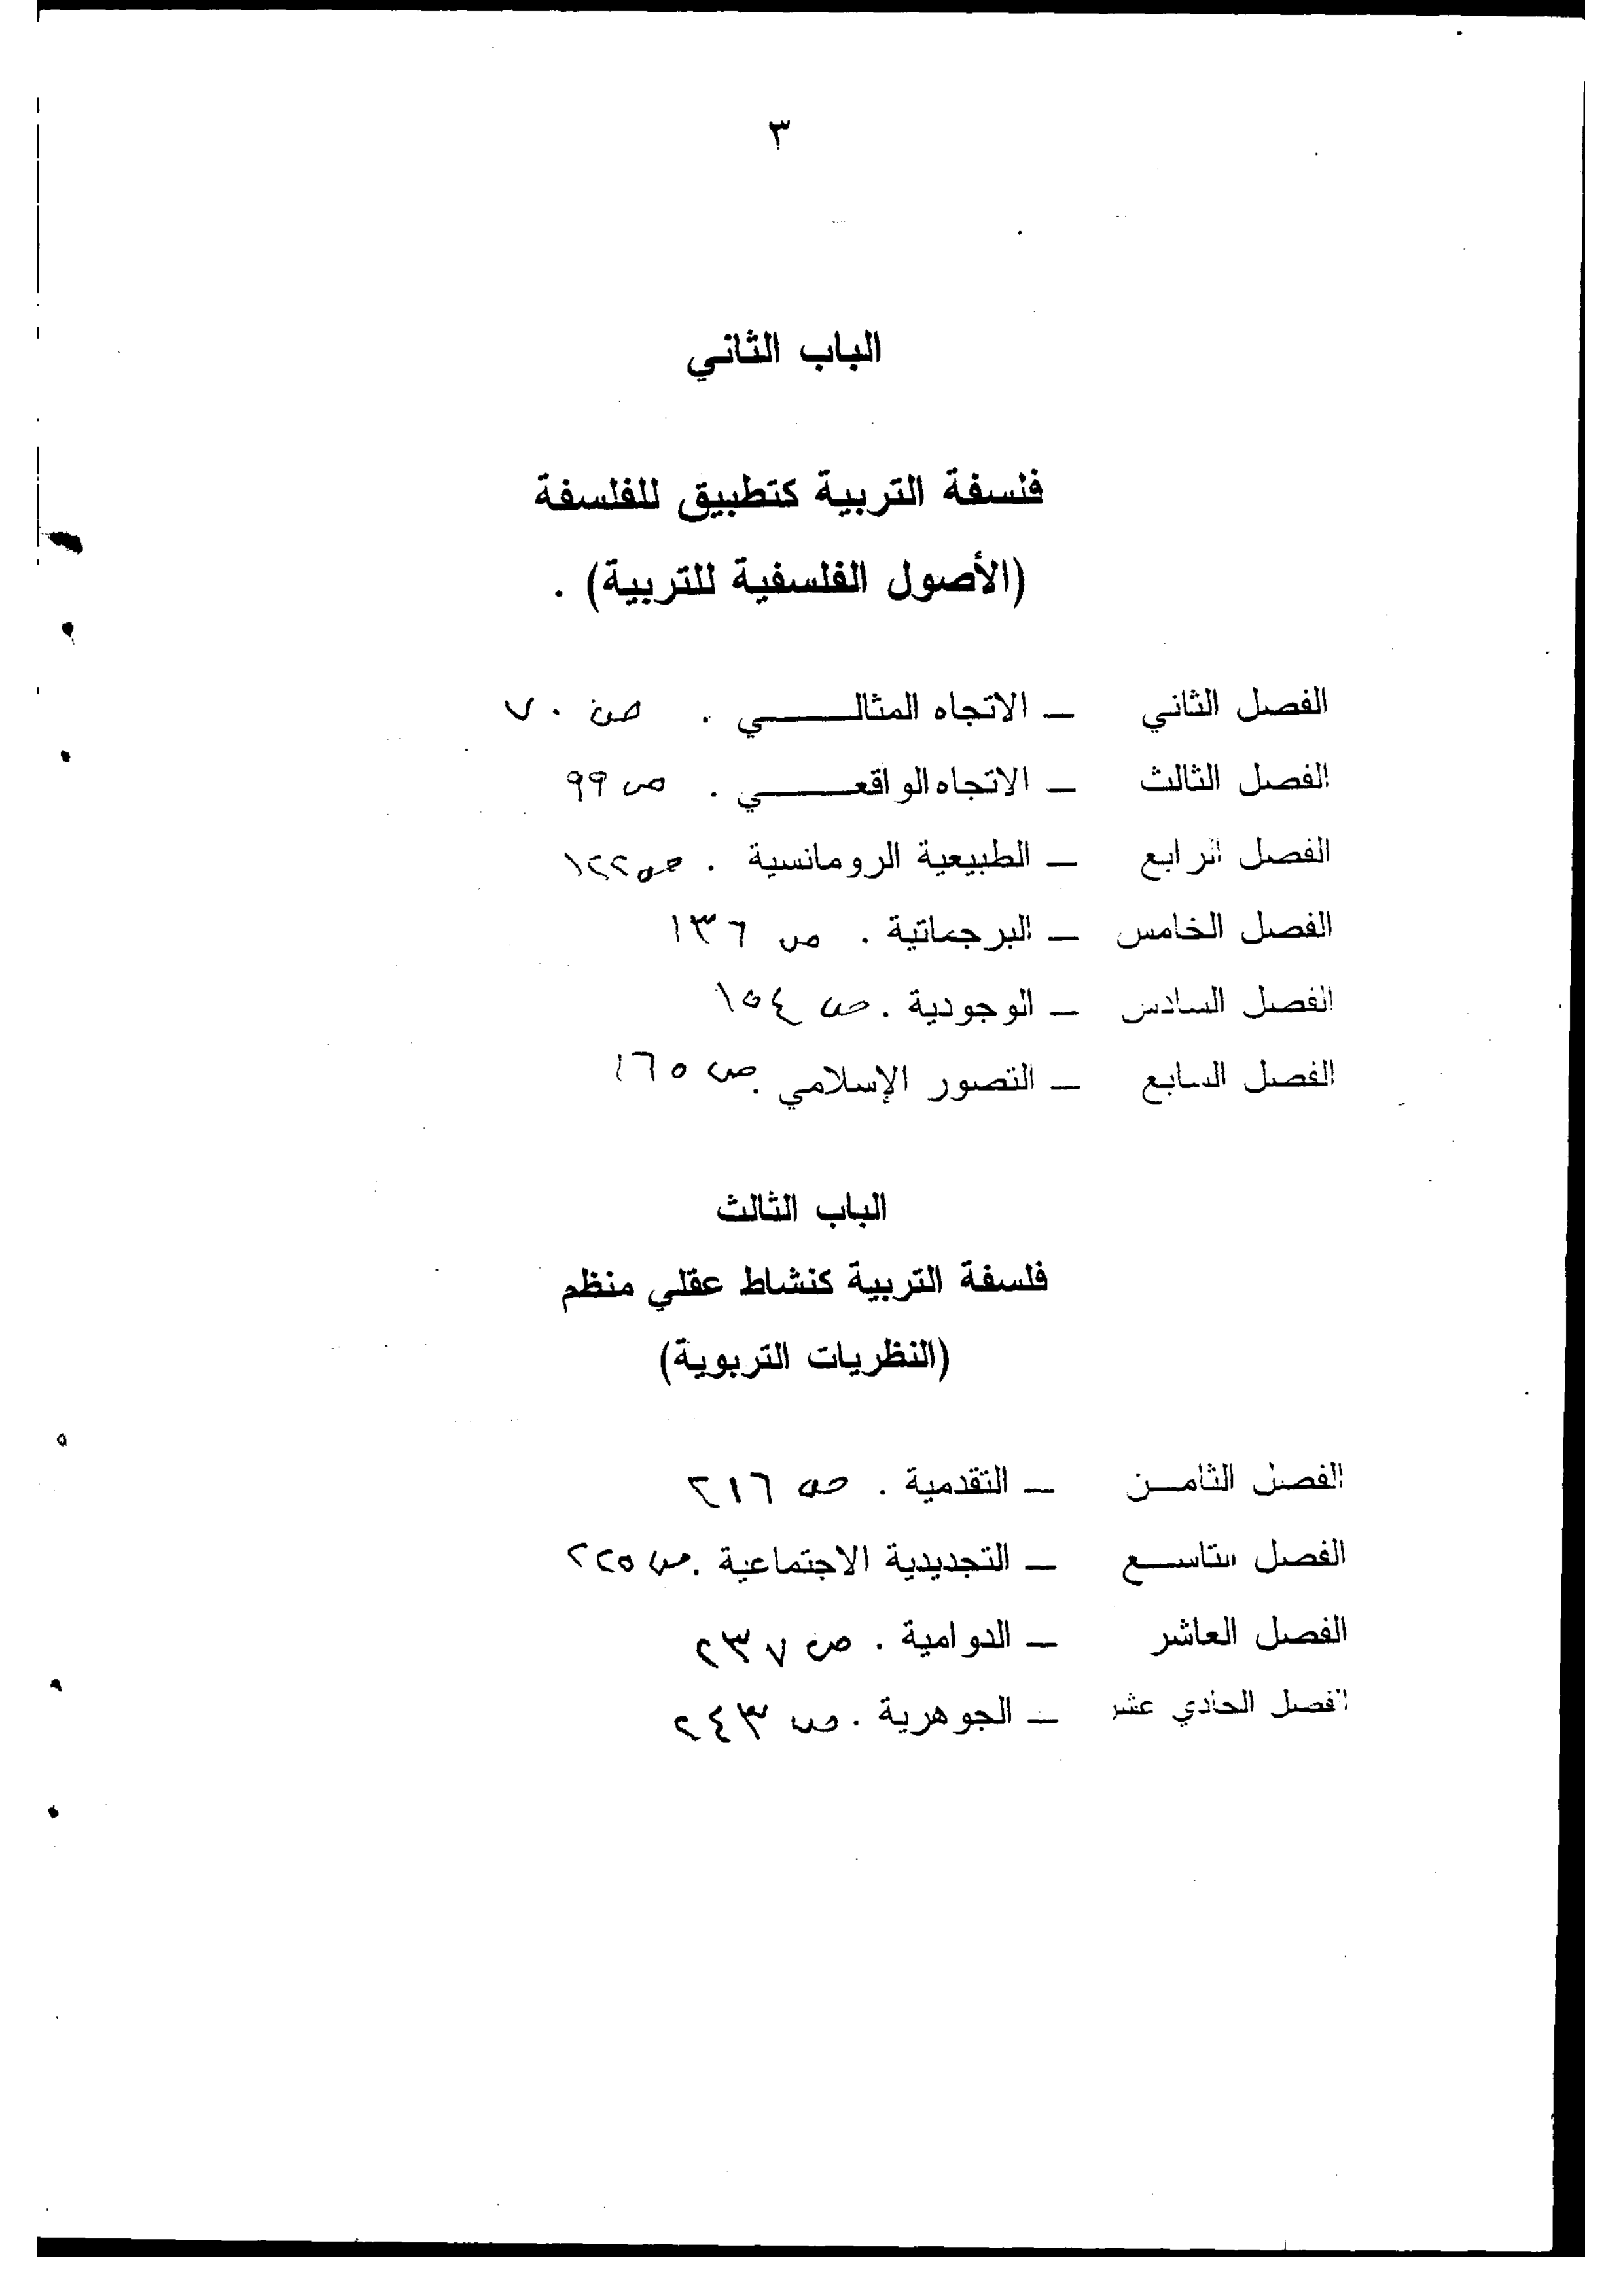 ٣
الباب الثاني
فلسفة التربية كتطبيق للفلسفة
(الأصول الفلسفية للتربية) .
الفصل الثاني – الاتجاه المثالـــــــي . ص ٧٠
الفصل الثالث – الاتجاه الواقعـــــــي . ص ٩٩
الفصل الرابع – الطبيعية الرومانسية . ص ١٢٢
الفصل الخامس – البرجماتية . ص ١٣٦
الفصل السادس – الوجودية . ص ١٥٤
الفصل السابع – التصور الإسلامي . ص ١٦٥
الباب الثالث
فلسفة التربية كنشاط عقلي منظم
(النظريات التربوية)
الفصل الثامــن – التقدمية . ص ٢١٦
الفصل التاســـع – التجديدية الاجتماعية . ص ٢٢٥
الفصل العاشر – الدوامية . ص ٢٣٧
الفصل الحادي عشر – الجوهرية . ص ٢٤٣